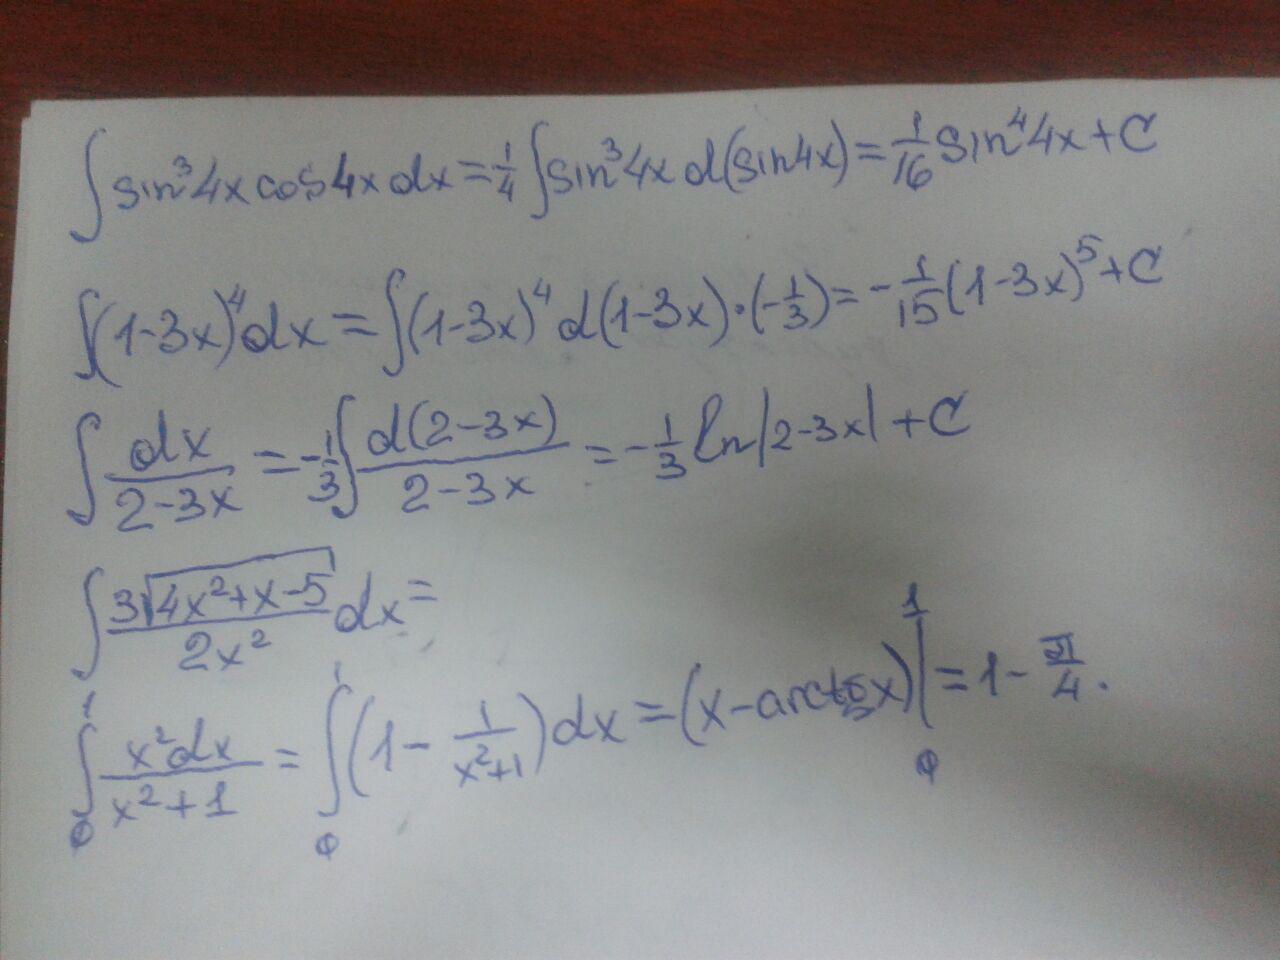 ∫ sin³4x cos4x dx = 1/4 ∫ sin³4x d(sin4x) = 1/16 sin⁴4x + C
∫ (1-3x)⁴ dx = ∫ (1-3x)⁴ d(1-3x)·(-1/3) = -1/15 (1-3x)⁵ + C
∫ dx/(2-3x) = -1/3 ∫ d(2-3x)/(2-3x) = -1/3 ln|2-3x| + C
∫ 3√(4x²+x-5)/(2x²) dx =
∫₀¹ x²dx/(x²+1) = ∫₀¹ (1 - 1/(x²+1)) dx = (x - arctg x)|₀¹ = 1 - π/4.